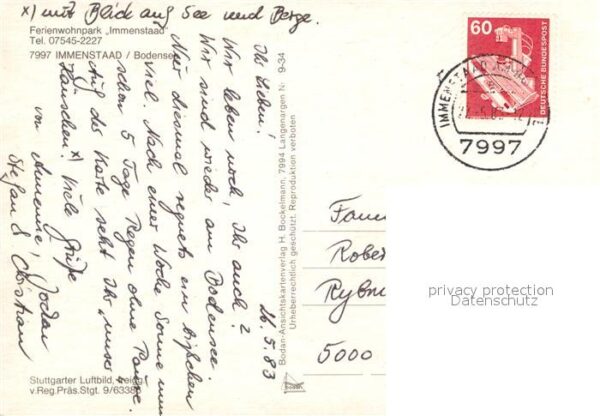 x) mit Blick auf See und Berge.
Ferienwohnpark „Immenstaad
Tel. 07545-2227
7997 IMMENSTAAD / Bodensee
26.5.83
Ihr Lieben!
Wir leben noch, Ihr auch?
Wir sind wieder am Bodensee.
Nur diesmal regnets ein bißchen
viel. Nach einer Woche Sonne nun
schon 5 Tage Regen ohne Pause.
Auf der Karte seht Ihr „unser"
Häuschen! x) Viele Grüße
von Annemie,
Stefan & Christian
Stuttgarter Luftbild,
v.Reg.Präs.Stgt. 9/6338
Bodan-Ansichtskartenverlag H. Bockelmann, 7994 Langenargen Nr. 9-34
Urheberrechtlich geschützt. Reproduktion verboten
60
DEUTSCHE BUNDESPOST
IMMENSTAAD
7997
Rober
5000
privacy protection
Datenschutz